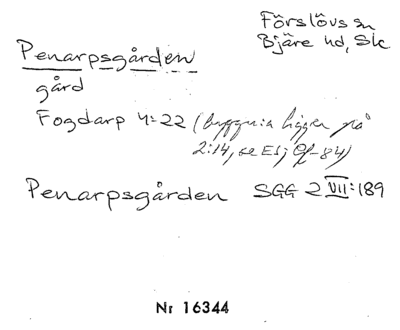 Förslövs sn
Bjäre hd, Sk
Penarpsgården
gård
Fogdarp 4:22 (byggn:a ligger på
2:14, se ESj Gf-84)
Penarpsgården SGG 2 VII:189
Nr 16344